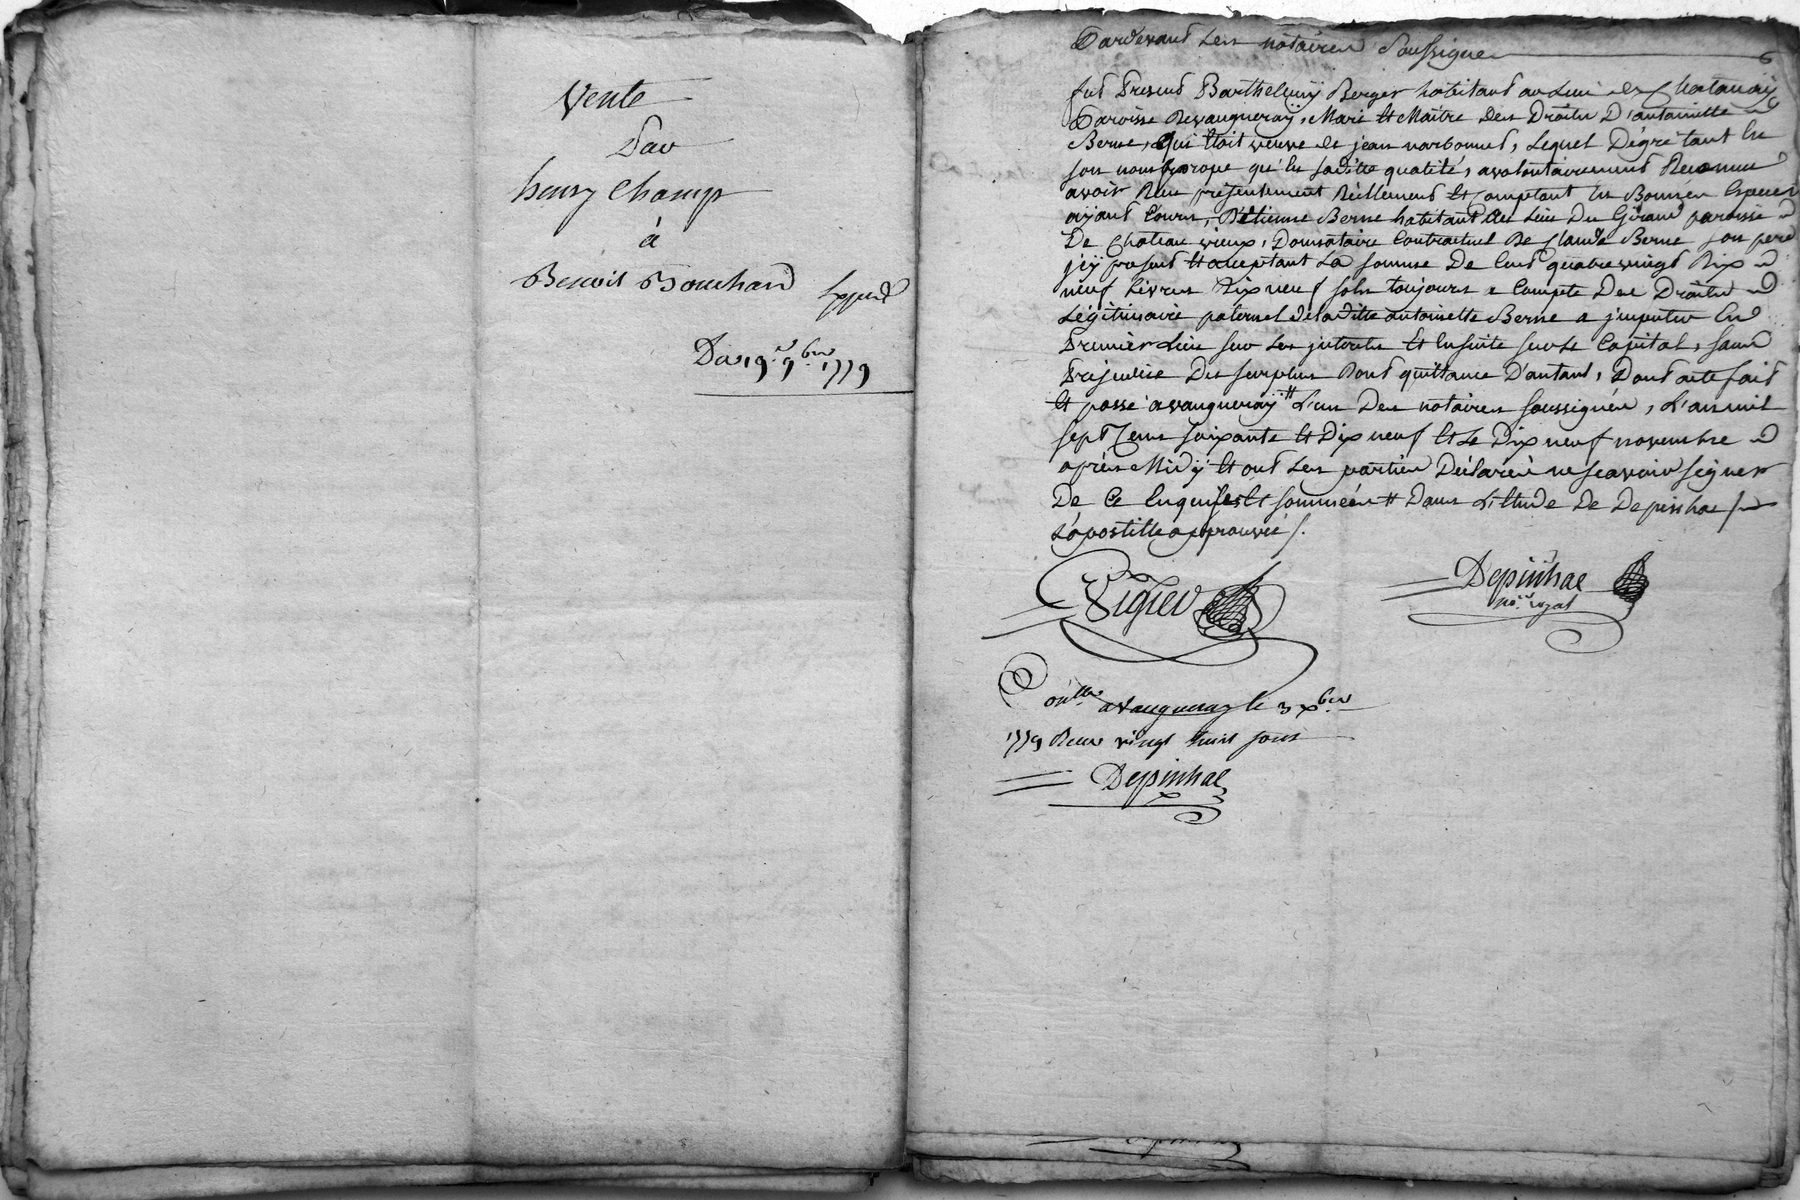 Vente
Par
henry Champ
à
Benoit Bouchard
Exped
Du 19.e 9.bre 1779
Pardevant Les notaires Soussignes
6
fut Present Barthelemy Berger habitant au Lieu de Chatanay
Paroisse De vaugneray, Mari et Maitre Des Droits D'antoinette
Berne, qui Etoit veuve de jean narbonnet, Lequel Degré tant En
son nom propre qu'En saditte qualité, a volontairement Reconnu
avoir Reçu présentement Réellement et Comptant En Bonnes Especes
ayant Cours, D'Etienne Berne habitant du Lieu Du Giraud paroisse
De Chateau vieux, Donnataire Contractuel De Claude Berne son pere
jcy present et acceptant La somme De Cent quatre vingt Dix
neuf Livres Dix neuf sols toujours a Compte Des Droits
Légitimaire paternel de laditte antoinette Berne a jmputer En
Premier Lieu sur Les jnterets et Ensuite sur Le Capital, sans
Prejudice Du surplus Dont quittance D'autant, Dont acte fait
et passé a vaugneray # L'un Des notaires soussignés, L'an mil
sept Cens soixante et Dix neuf et Le Dix neuf novembre
après Midy et ont Les parties Déclarées ne scavoir signer
De Ce Enquises et sommées # Dans L'Etude De Depinhac
L'apostille approuvée /.
Vigier
Depinhac
no.re royal
Con.llé a Vaugneray le 3 x.bre
1779 Recu vingt huit sous
Depinhac